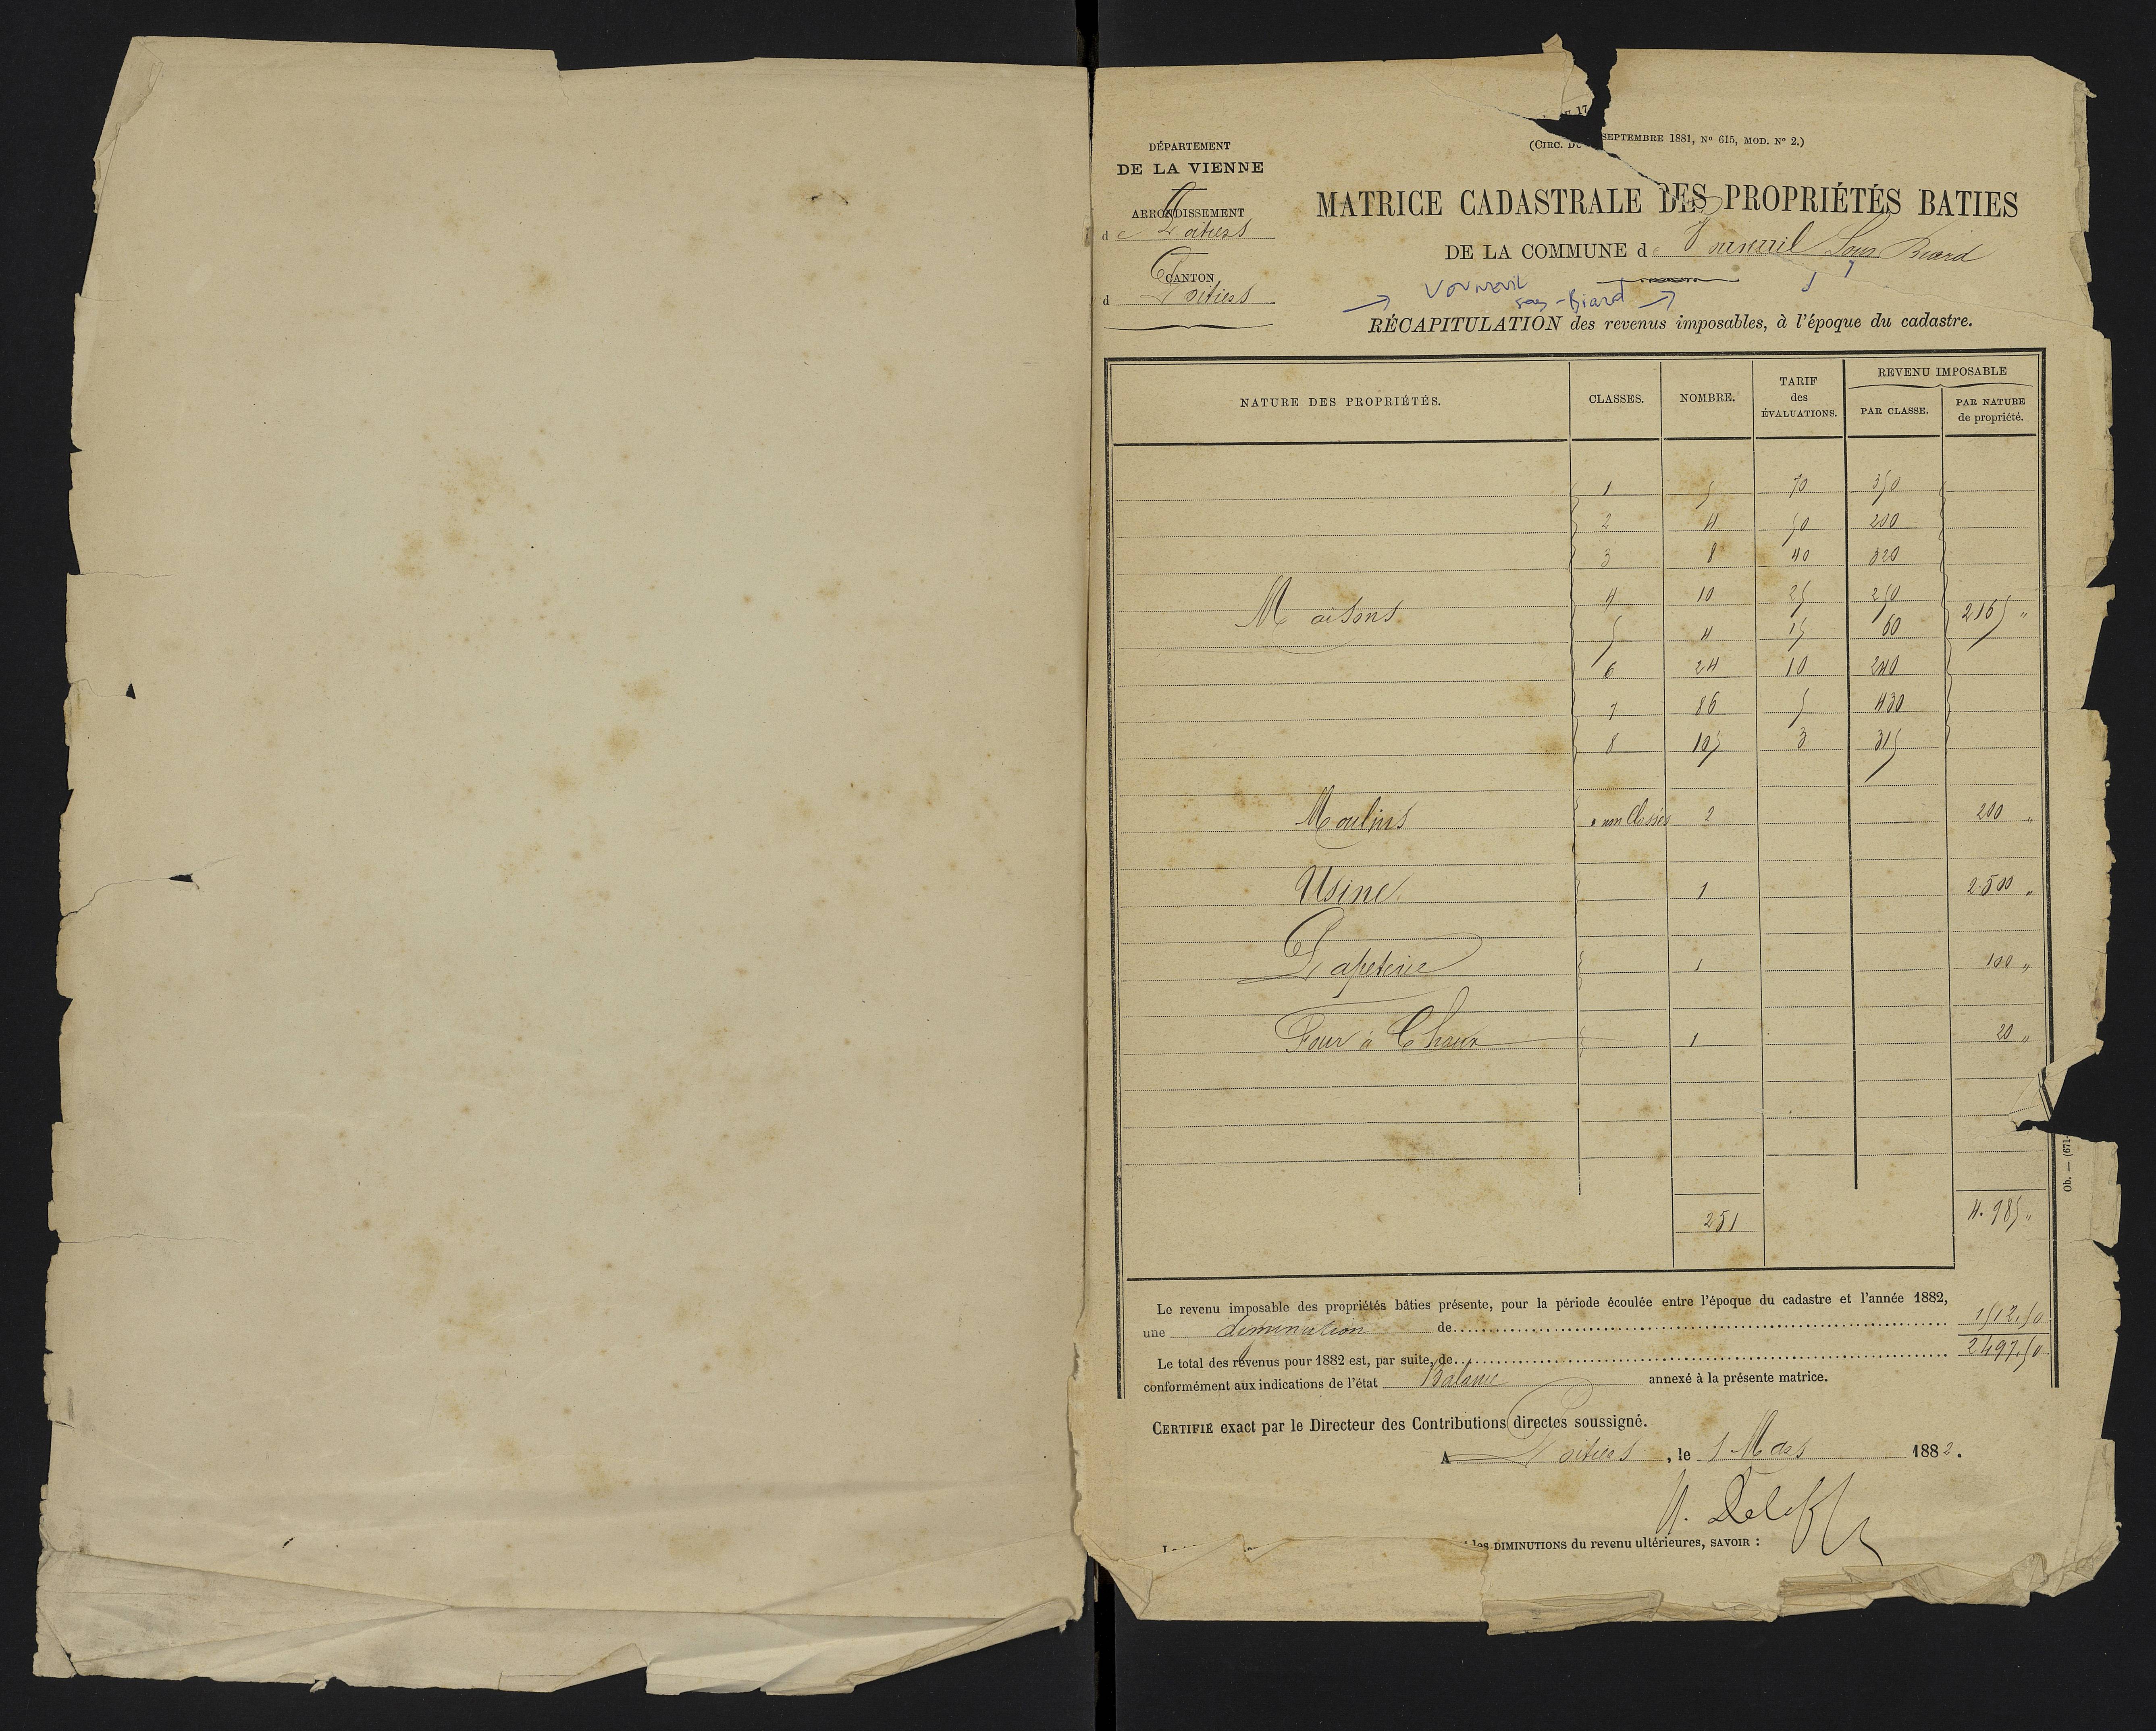 DÉPARTEMENT
DE LA VIENNE
ARRONDISSEMENT
de Poitiers
CANTON
d Poitiers
E 17
(CIRC. DU SEPTEMBRE 1881, N° 615, MOD. N° 2.)
MATRICE CADASTRALE DES PROPRIÉTÉS BATIES
DE LA COMMUNE de Vouneuil Sous Biard
→ Vouneuil
sous-Biard →
RÉCAPITULATION des revenus imposables, à l'époque du cadastre.
NATURE DES PROPRIÉTÉS. CLASSES. NOMBRE. TARIF des ÉVALUATIONS. REVENU IMPOSABLE
PAR CLASSE. PAR NATURE de propriété.
1 5 70 350
2 4 50 200
3 8 40 320
4 10 25 250
Maisons 2165 "
5 4 15 60
6 24 10 240
7 86 5 430
8 105 3 315
Moulins non Classés 2 200 "
Usine 1 2.500 "
Papeterie 1 100 "
Four à Chaux 1 20 "
251 4.985 "
Le revenu imposable des propriétés bâties présente, pour la période écoulée entre l'époque du cadastre et l'année 1882,
une diminution de 1512,50
Le total des revenus pour 1882 est, par suite, de 2497,50
conformément aux indications de l'état Balance annexé à la présente matrice.
CERTIFIÉ exact par le Directeur des Contributions directes soussigné.
A Poitiers, le 1 Mars 1882.
les DIMINUTIONS du revenu ultérieures, SAVOIR :
Ob. — (671-